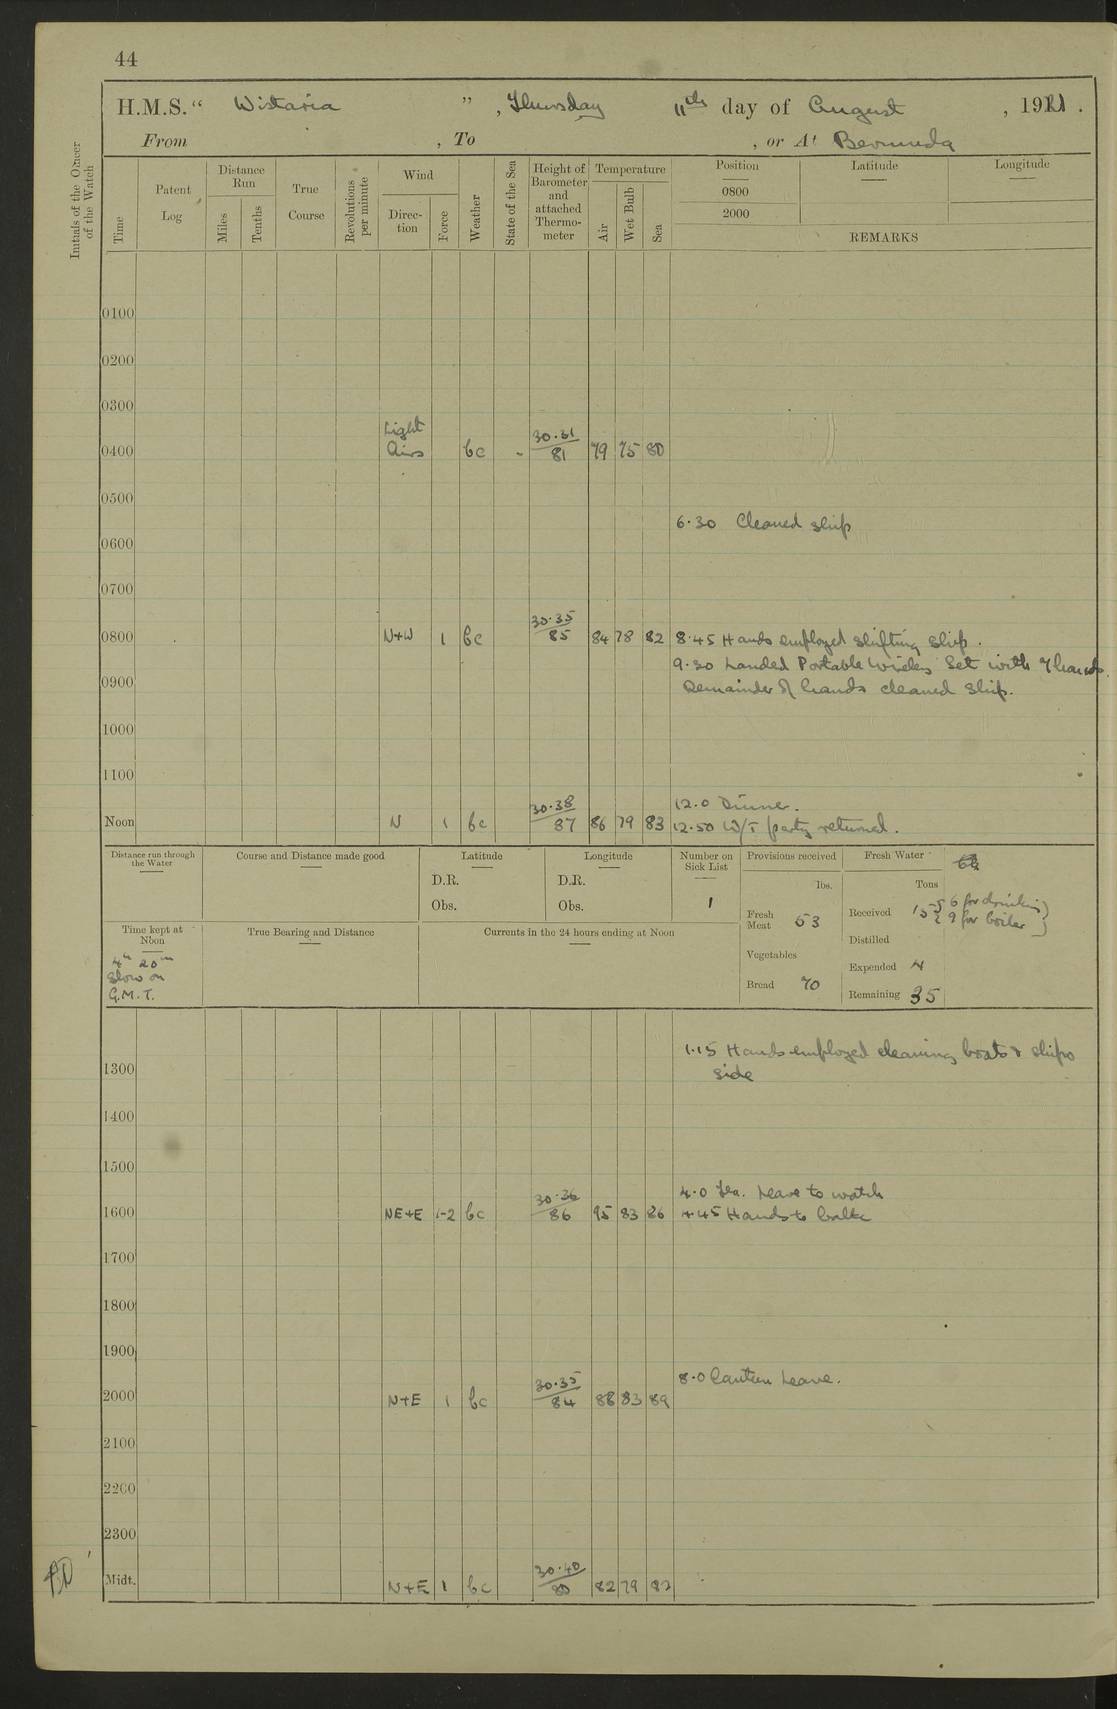 44
H.M.S. " Wistaria " , Thursday 11th day of August , 1921 .
From , To , or At Bermuda
Initials of the Officer of the Watch
Time
Patent Log
Distance Run
Miles
Tenths
True Course
Revolutions per minute
Wind
Direc-tion
Force
Weather
State of the Sea
Height of Barometer and attached Thermo-meter
Temperature
Air
Wet Bulb
Sea
Position Latitude Longitude
0800
2000
REMARKS
0100
0200
0300
Light
0400 Airs bc - 30.31/81 79 75 80
0500
6.30 Cleaned ship
0600
0700
0800 N+W 1 bc 30.35/85 84 78 82 8.45 Hands employed shifting ship.
9.30 Landed Portable Wireless Set with 7 hands.
0900 Remainder of hands cleaned ship.
1000
1100
12.0 Dinner.
Noon N 1 bc 30.38/87 86 79 83 12.50 W/T party returned.
Distance run through the Water
Course and Distance made good
Latitude
D.R.
Obs.
Longitude
D.R.
Obs.
Number on Sick List
1
Provisions received
lbs.
Fresh Meat 53
Vegetables
Bread 70
Fresh Water
Tons
Received 15 { 6 for drinking }
{ 9 for boiler }
Distilled
Expended 4
Remaining 35
Time kept at Noon
4h 20m
Slow on
G.M.T.
True Bearing and Distance
Currents in the 24 hours ending at Noon
1.15 Hands employed cleaning boats & ships
1300 side
1400
1500
4.0 Tea. Leave to watch
1600 NE+E 1-2 bc 30.36/86 95 83 86 4.45 Hands to bathe
1700
1800
1900
8.0 Canteen Leave.
2000 N+E 1 bc 30.35/84 88 83 89
2100
2200
2300
Midt. N+E 1 bc 30.40/80 82 79 83